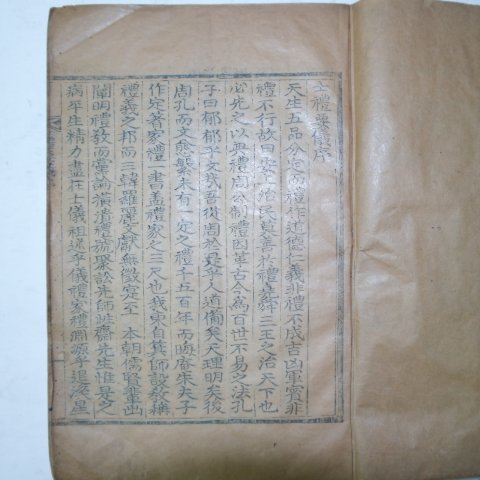 士禮要儀序
天生五品分定而禮作道德仁義非禮不成吉凶軍賓非
禮不行故曰安上治民莫善於禮堯舜三王之治天下也
必先之以典禮周公制禮因革古今爲百世不易之法孔
子曰郁郁乎文哉吾從周於是乎人道備矣天理明矣後
周孔而文愈繁未有一定之禮千五百年而晦庵朱夫子
作定著家禮一書盖禮家之三尺也我東自箕師設敎蘇
禮義之邦而三韓羅麗文獻無徵寔至 本朝儒賢輩出
闡明禮敎而彙論潢潰禮說聚訟先師 齋先生惟是之
病平生精力盡在士儀祖述乎儀禮家禮淵源乎退溪星